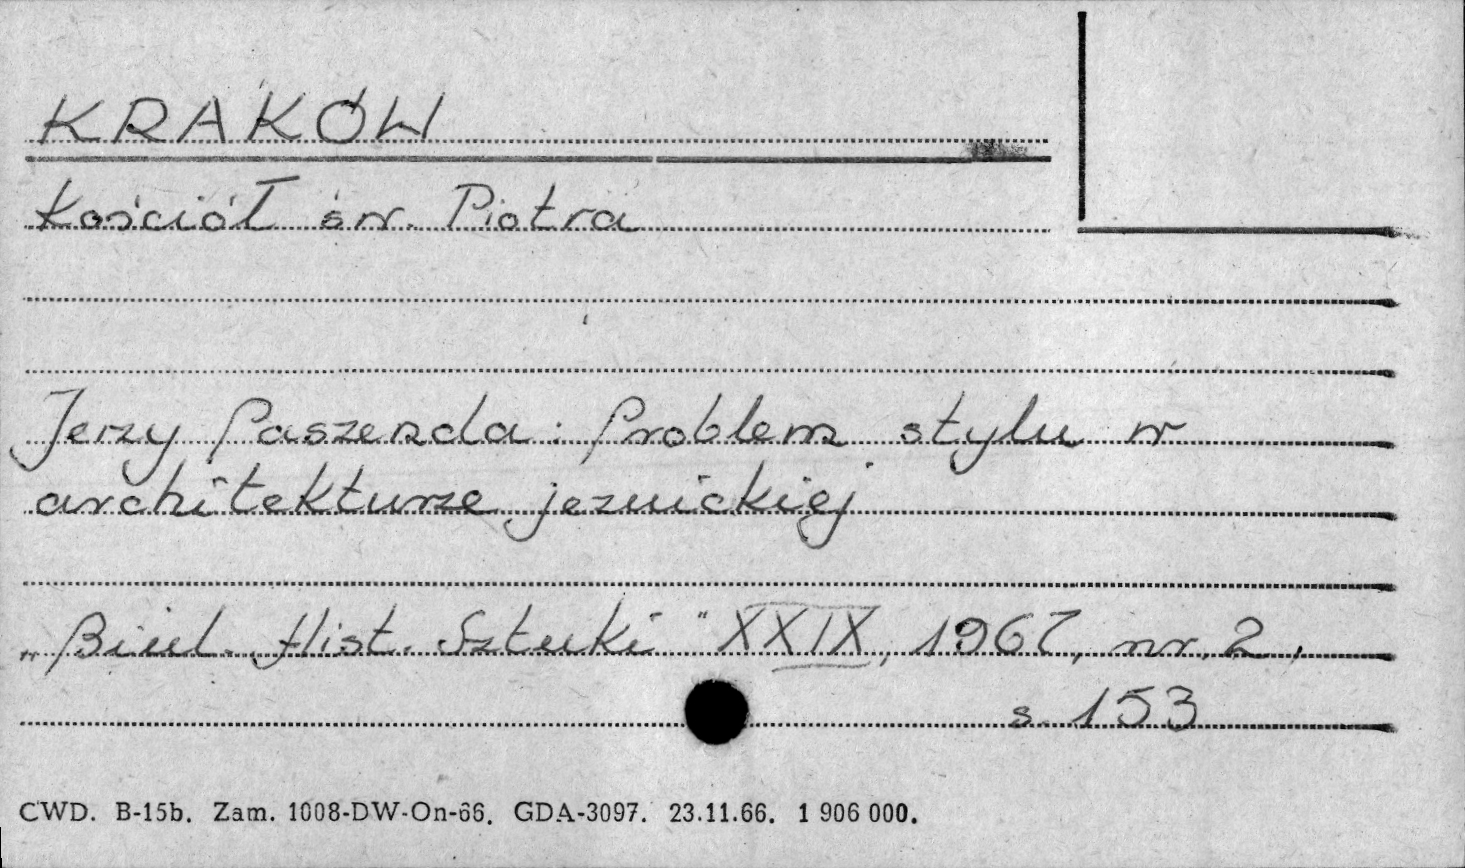 KRAKÓW
Kościół św. Piotra
Jerzy Paszenda : Problem stylu w
architekturze jezuickiej
„Biul. Hist. Sztuki" XXIX, 1967, nr. 2,
s. 153
CWD. B-15b. Zam. 1008-DW-On-66. GDA-3097. 23.11.66. 1 906 000.